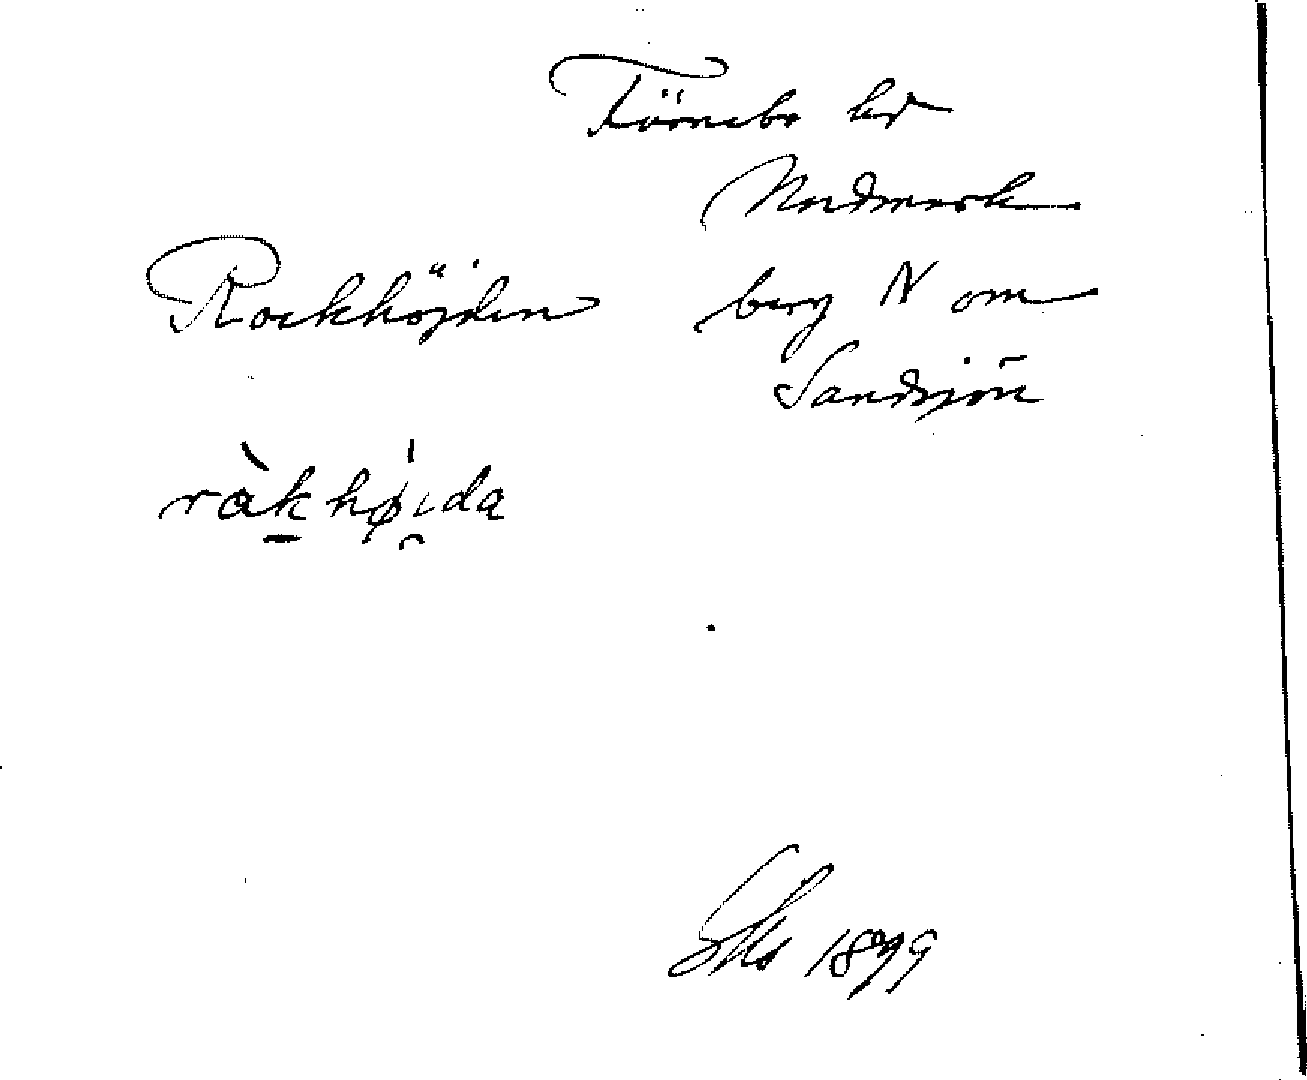 Färnebo hd
Nordmark
Rockhöjden berg N om
Sandsjön
råkhøi̯da
1899